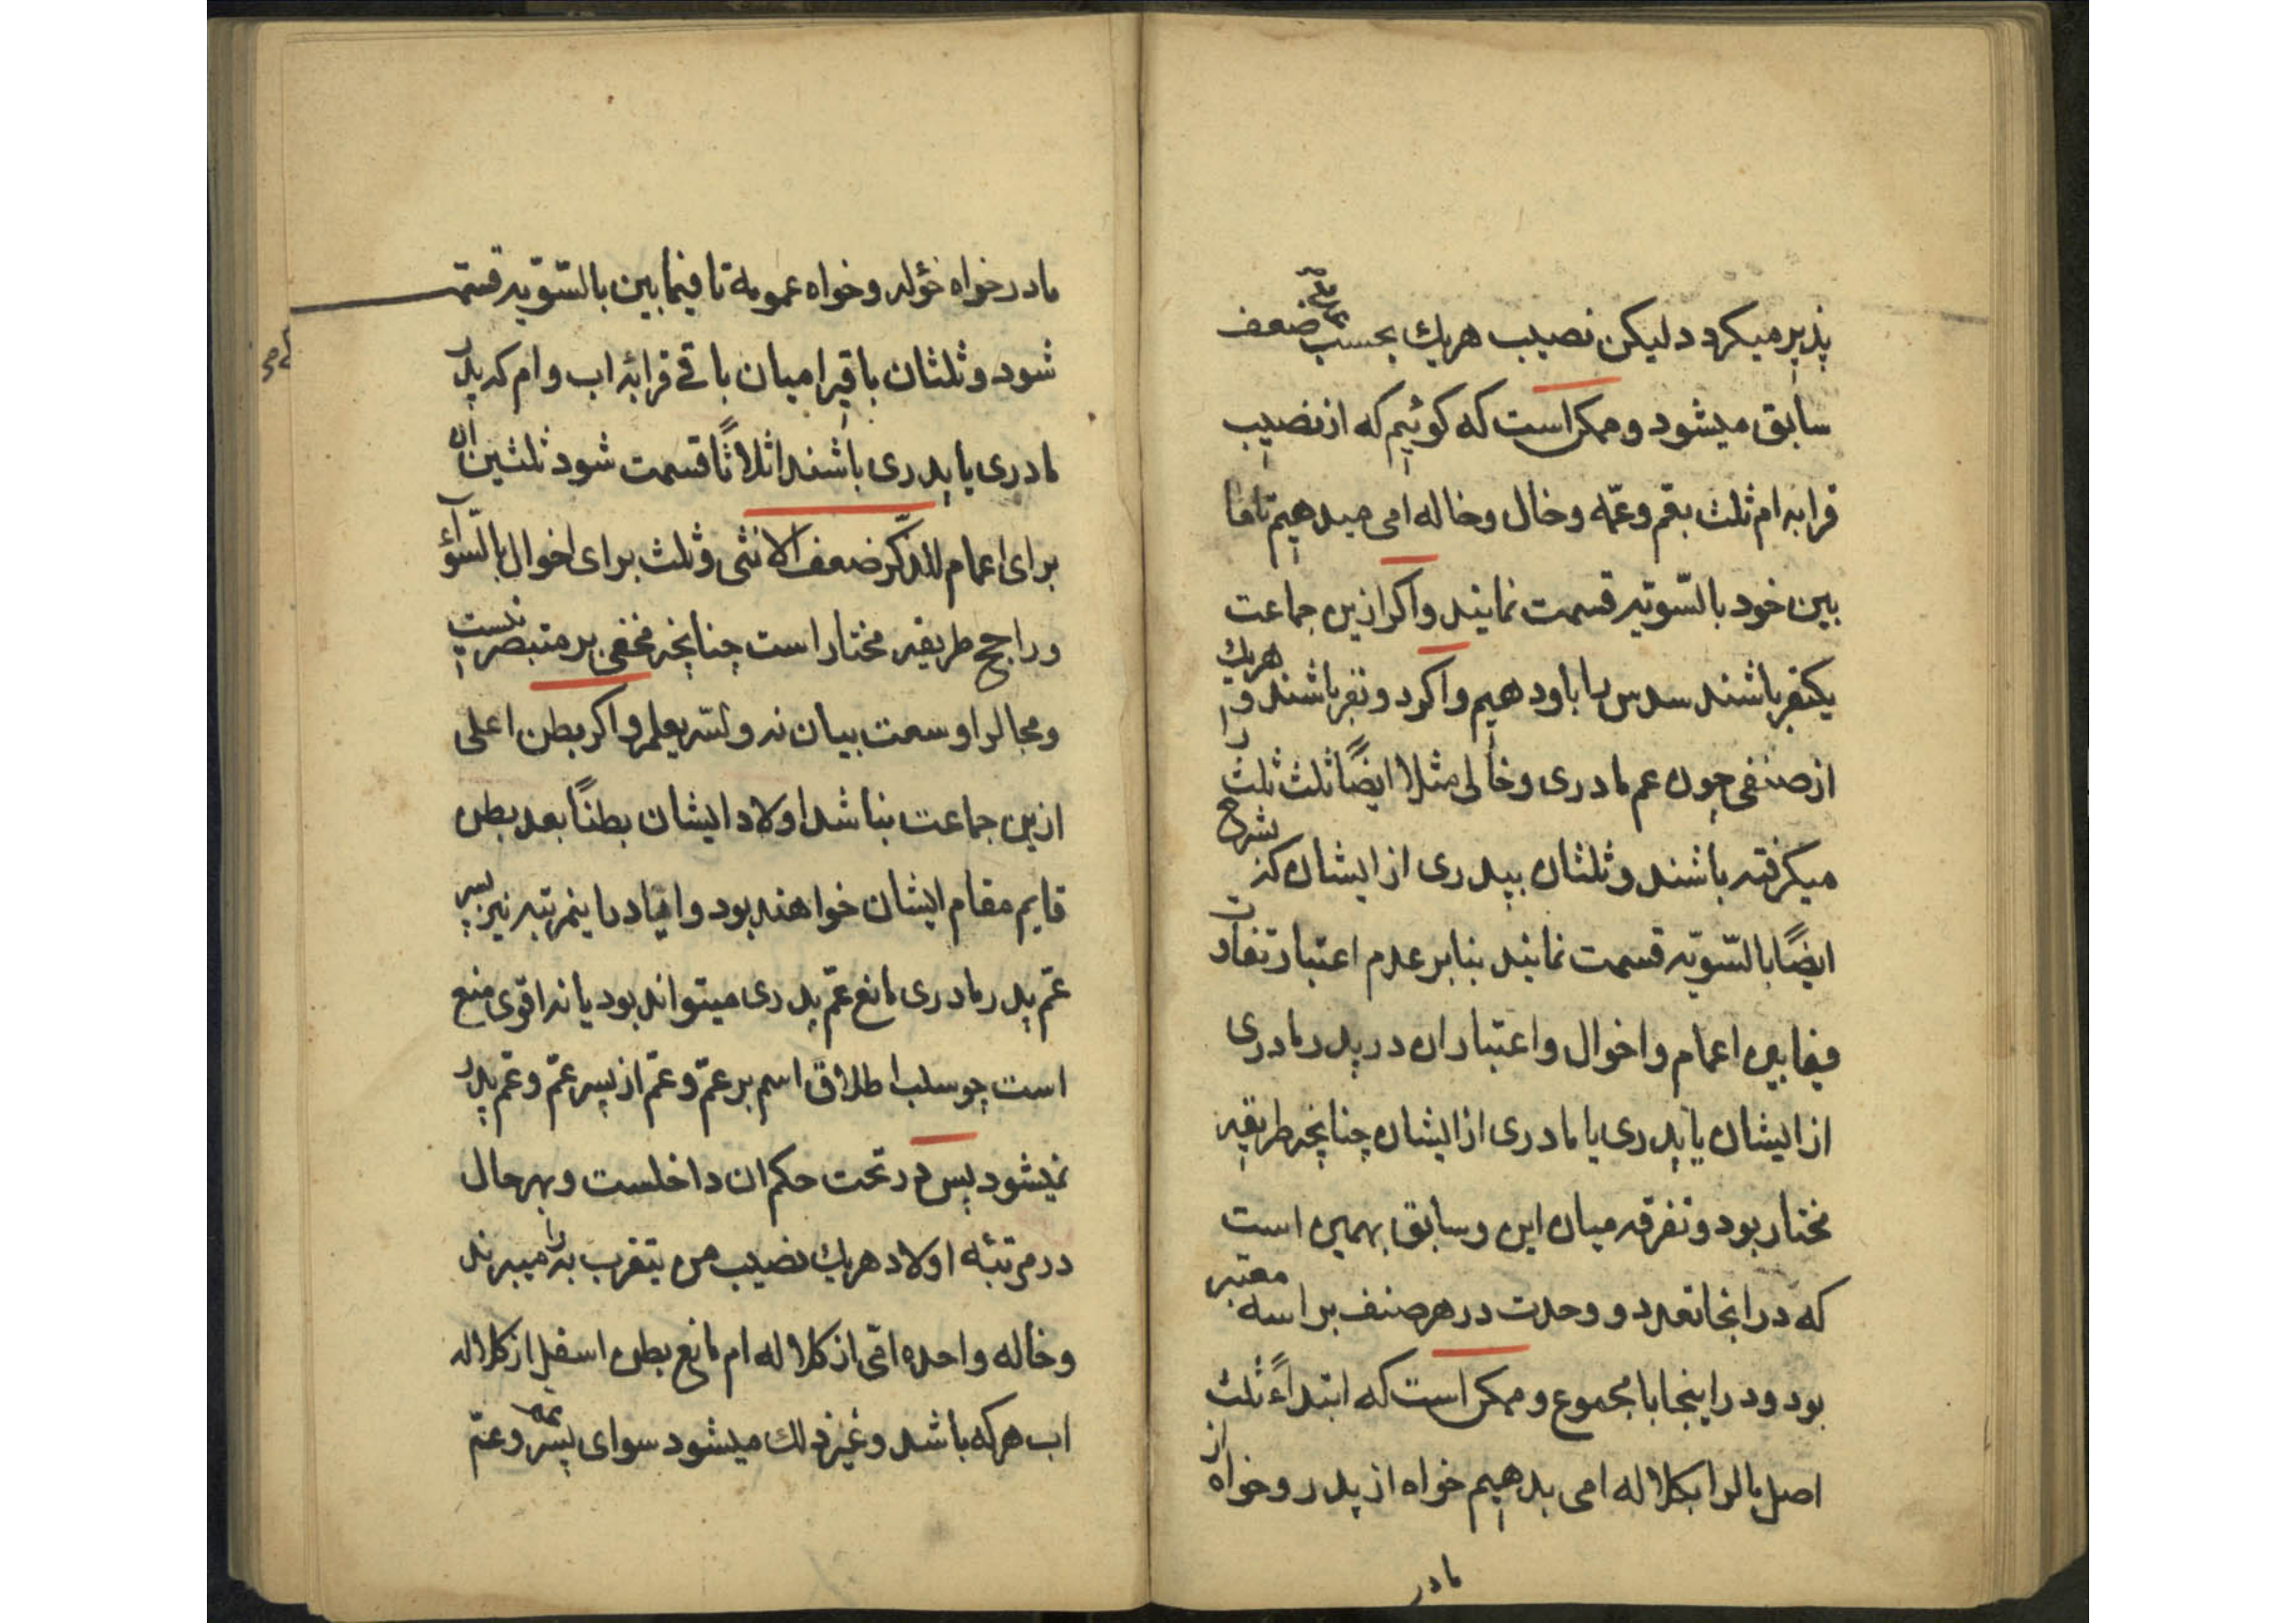 پذیر میکردد لیکن نصیب هریك بحسب ضعف
سابق میشود و ممکن است که کوئیم که از نصیب
قرابه ام ثلث بعم و عمّه و خال و خاله امی میدهیم تا فیما
بین خود بالسّویّه قسمت نمایند و اکر ازین جماعت
یکنفر باشند سدس را باو دهیم و اکر دو نفر باشند و هریك
از صنفی چون عم مادری و خالی مثلا ایضًا ثلث ثلث را
میکرفته باشند و ثلثان بپدری از ایشان که بشرح
ایضًا بالسّویّه قسمت نمایند بنابر عدم اعتبار تفاوت
فیمابین اعمام و اخوال و اعتبار ان در پدر مادری
از ایشان یا پدری یا مادری از ایشان چنانچه طریقه
مختار بود و تفرقه میان این و سابق بهمین است
که در انجا تعدد و وحدت در هر صنف براسه معتبر
بود و در اینجا با مجموع و ممکن است که ابتداءً ثلث
اصل مالرا بکلاله امی بدهیم خواه از پدر و خواه از
مادر
مادر خواه خؤله و خواه عمومة تا فیمابین بالسّویّه قسمة
شود و ثلثان باقیرا میان باقی قرابهٔ اب و ام که پدر
مادری یا پدری باشند اثلاثًا قسمت شود ثلثین ان
برای اعمام للذّکر ضعف الانثی و ثلث برای اخوال بالسّوآء
و راجح طریقه مختار است چنانچه مخفی بر متبصر نیست
و مجالرا وسعت بیان نه و لله یعلم و اکر بطن اعلی
ازین جماعت نباشد اولاد ایشان بطنًا بعد بطن
قایم مقام ایشان خواهند بود و ایّا در اینمرتبه نیز پسر
عمّ پدر مادری مانع عمّ پدری میتواند بود یا نه اقوی منع
است چو سلب اطلاق اسم بر عمّ و عمّ از پسر عمّ و عم پدر
نمیشود پس در تحت حکم ان داخلست و بهر حال
در مرتبه اولاد هریك نصیب من یتقرب به را میبرند
و خاله واحده امّی از کلاله ام مانع بطن اسفل از کلاله
اب هر که باشد و غیر ذلك میشود سوای پسر عمّ و عمّ